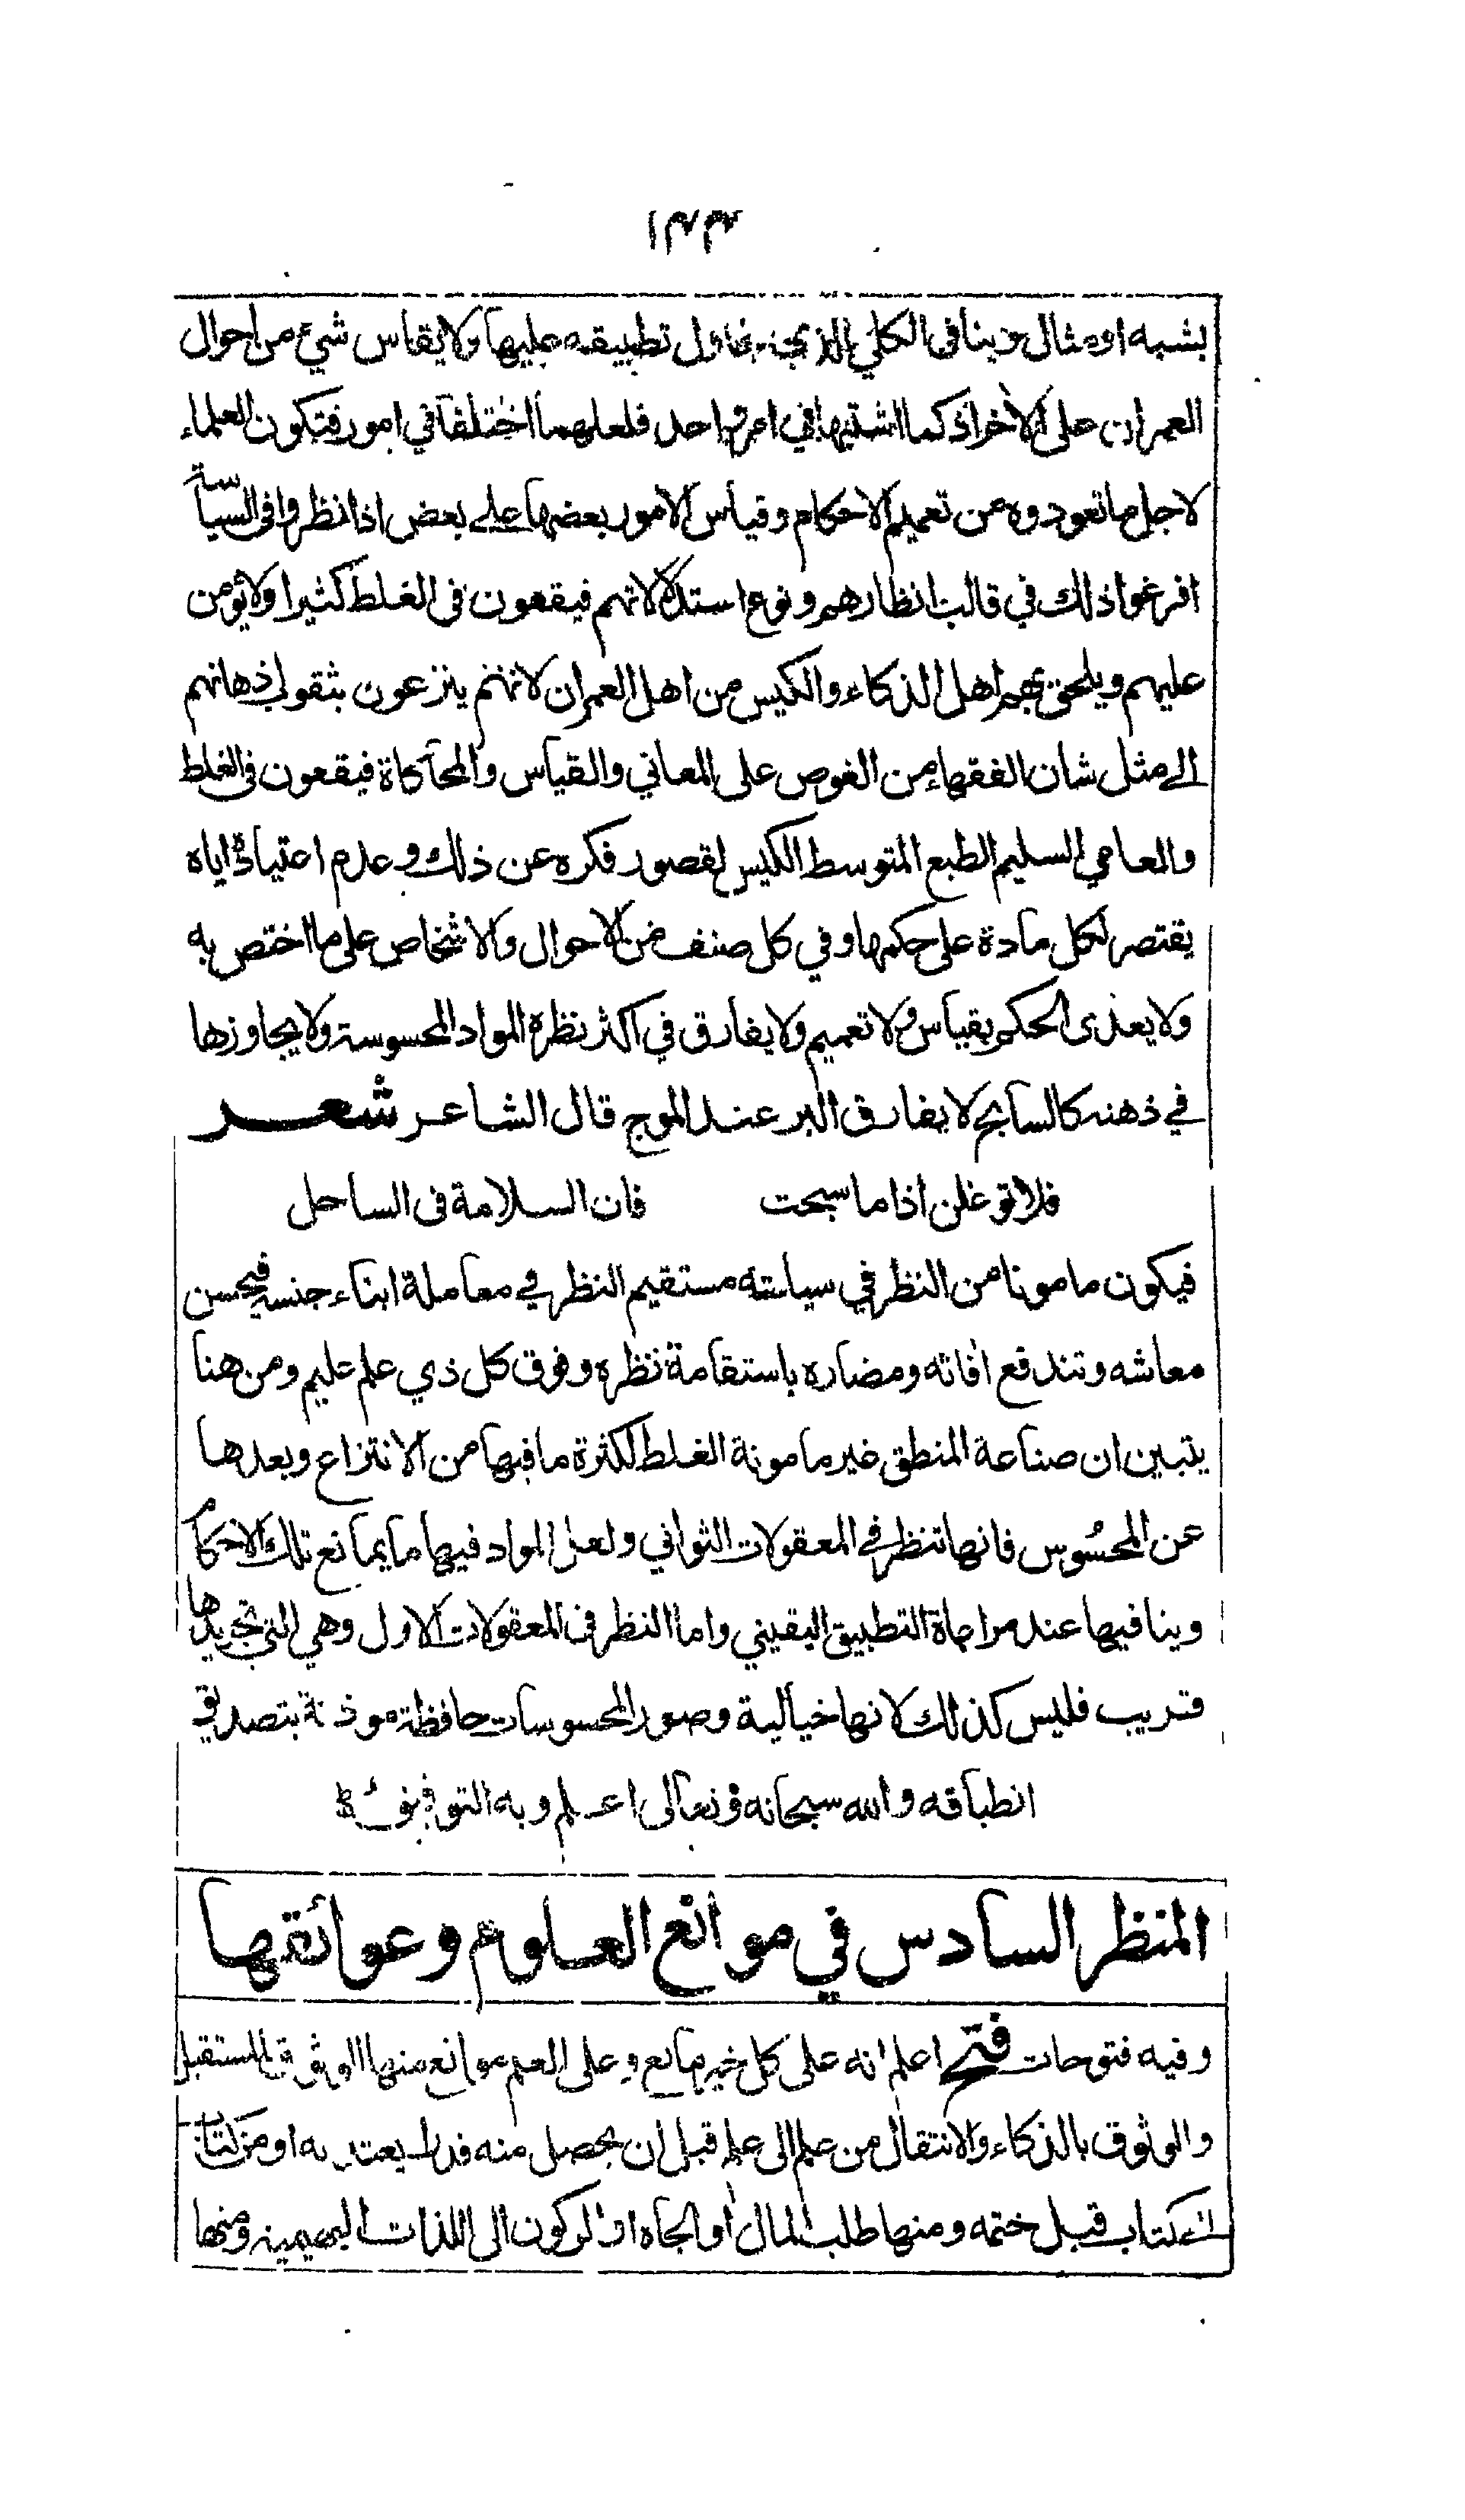 ١٣٣
بشبه او مثال وينافى الكلي الذي يحاول تطبيقه عليها ولا يقاس شيء من احوال
العمران على الاخر اذ كما اشتبها في امر واحد فلعلهما اختلفا في امور فتكون العلماء
لاجل ما تعودوه من تعميم الاحكام وقياس الامور بعضها على بعض اذا نظروا فى السياسة
افرغوا ذلك في قالب انظارهم ونوع استدلالاتهم فيقعون فى الغلط كثيرا ولا يؤمن
عليهم ويلحق بهم اهل الذكاء والكيس من اهل العمران لانهم ينزعون بثقوب اذهانهم
الى مثل شان الفقهاء من الغوص على المعاني والقياس والمحاكاة فيقعون فى الغلط
والعامي السليم الطبع المتوسط الكيس لقصور فكره عن ذلك وعدم اعتياده اياه
يقتصر لكل مادة على حكمها وفي كل صنف من الاحوال والاشخاص على ما اختص به
ولا يعدى الحكم بقياس ولا تعميم ولا يفارق في اكثر نظره المواد المحسوسة ولا يجاوزها
في ذهنه كالسابح لا يفارق البر عند الموج قال الشاعر شعر
فلا توغلن اذا ما سبحت فان السلامة فى الساحل
فيكون مامونا من النظر في سياسته مستقيم النظر في معاملة ابناء جنسه فيحسن
معاشه وتندفع افاته ومضاره باستقامة نظره وفوق كل ذي علم عليم ومن هنا
يتبين ان صناعة المنطق غير مامونة الغلط لكثرة ما فيها من الانتزاع وبعدها
عن المحسُوس فانها تنظر في المعقولات الثواني ولعل المواد فيها ما يمانع تلك الاحكام
وينافيها عند مراعاة التطبيق اليقيني واما النظر فى المعقولات الاول وهي التي تجريدها
قريب فليس كذلك لانها خيالية وصور المحسوسات حافظة موذنة بتصديق
انطباقه والله سبحانه وتعالى اعلم وبه التوفيق
المنظر السادس في موانع العلوم وعوائقها
وفيه فتوحات فتح اعلم انه على كل خير مانع وعلى العلم موانع منها الوثوق بالمستقبل
والوثوق بالذكاء والانتقال من علم الى علم قبل ان يحصل منه قدر يعتد به او من كتاب
الى كتاب قبل ختمه ومنها طلب المال او الجاه او الركون الى اللذات البهيمية ومنها